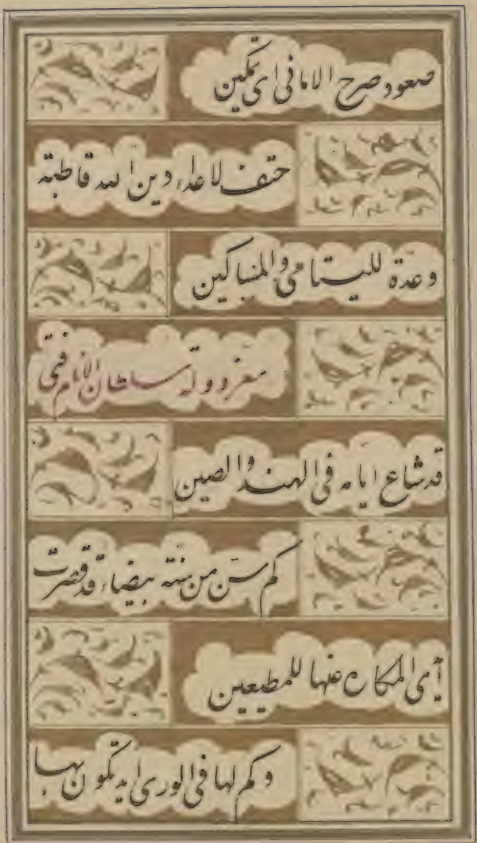 صعود صرح الامانى اى تمكين
حتف لاعداء دين الله قاطبته
وعدة لليتامى والمساكين
معز دولة سلطان الانام فتى
قد شاع ايامه فى الهند والصين
كم سن من سنة بيضاء قد قصرت
آى المكاره عنها للمطيعين
وكم لها فى الورى ايد تكون بها